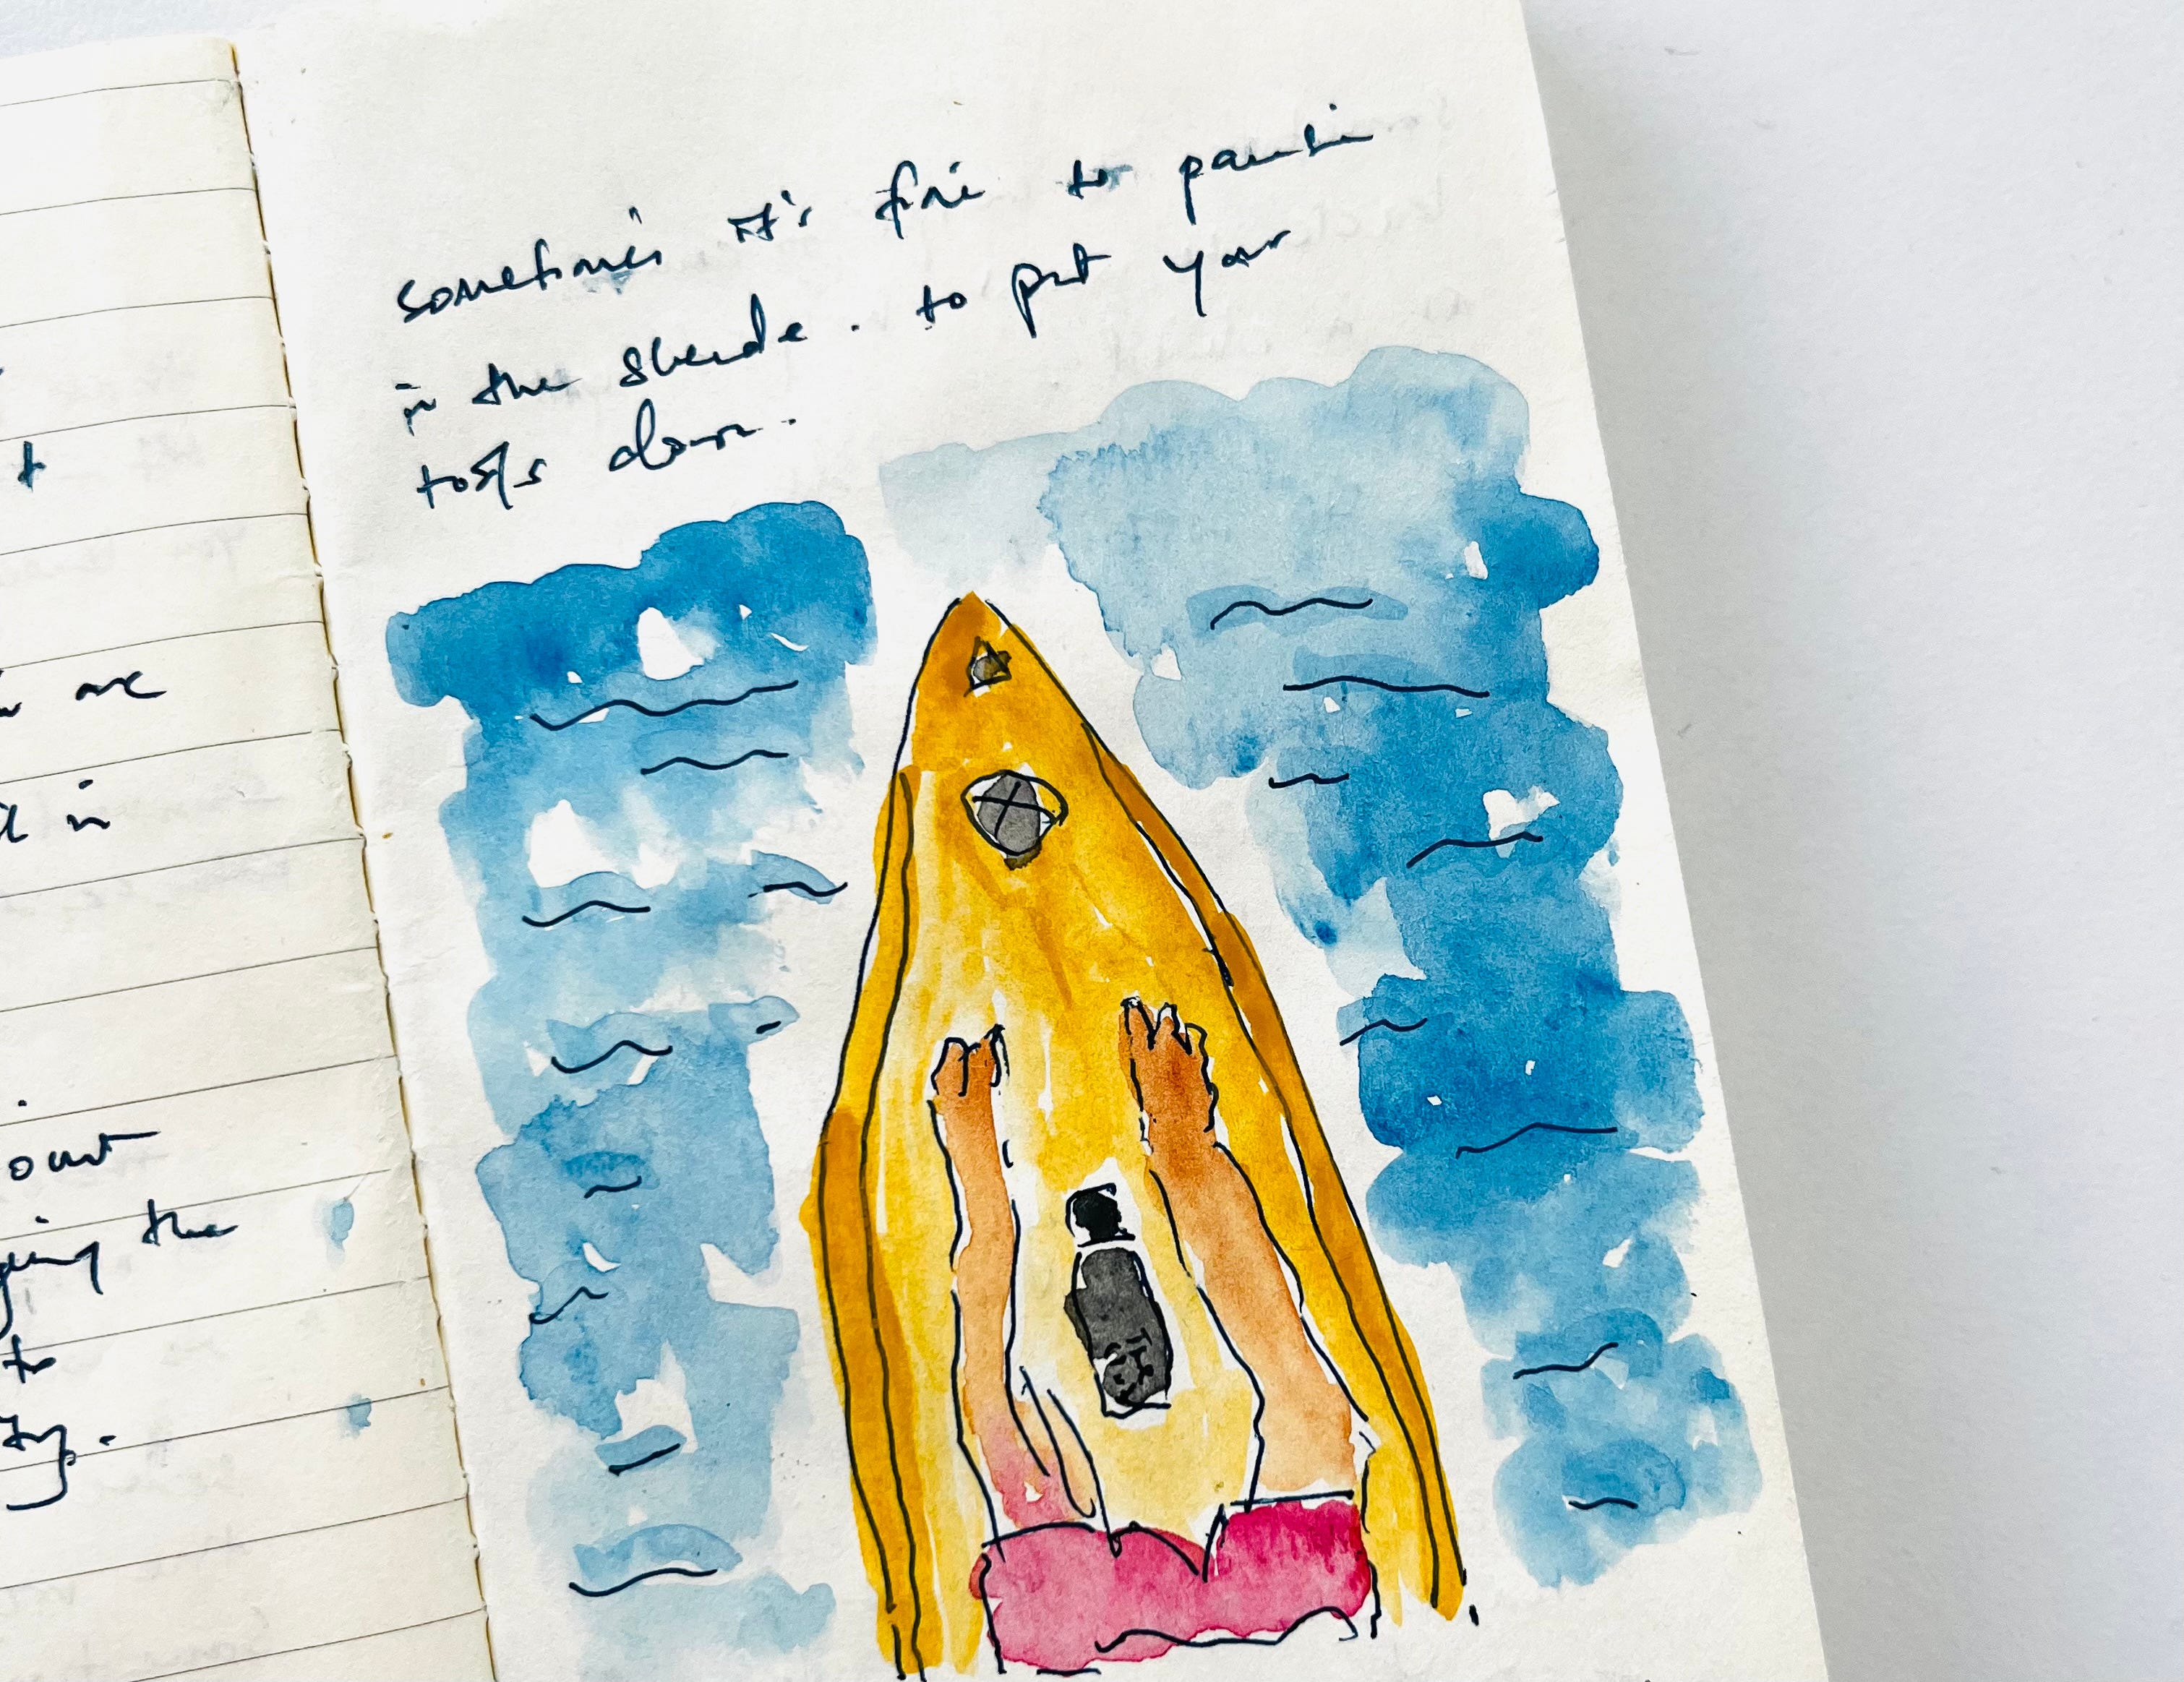 t
are
in
out
ging the
to
ty.
sometimes it's fine to pause
in the shade. to put your
tools down.